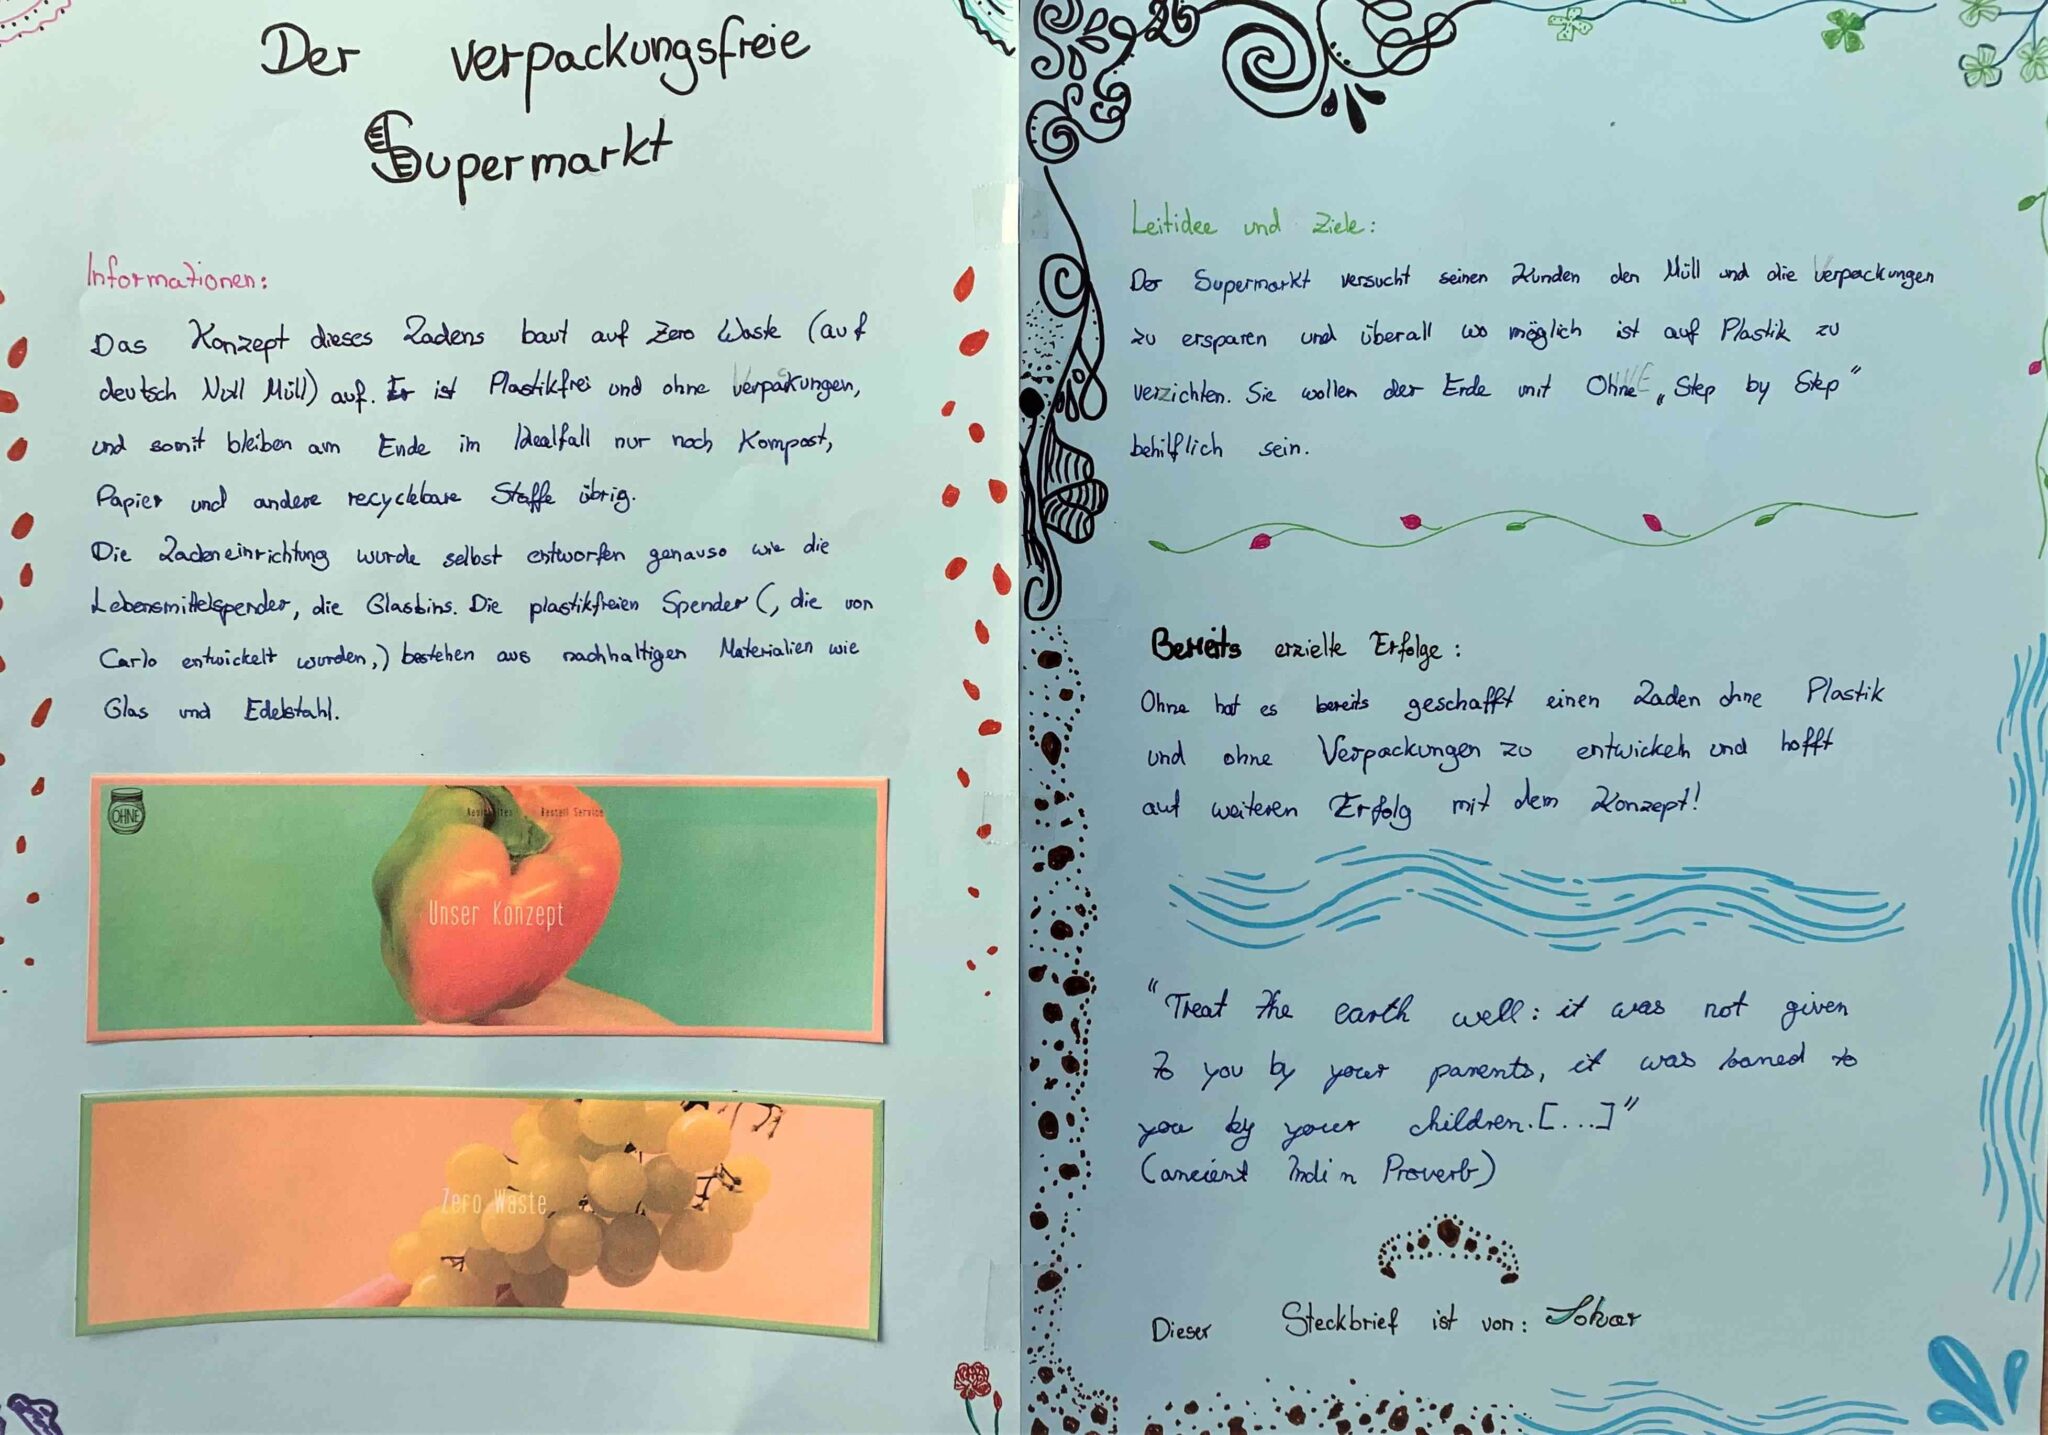 Der verpackungsfreie
Supermarkt
Informationen:
Das Konzept dieses Ladens baut auf Zero Waste (auf
deutsch Null Müll) auf. Er ist Plastikfrei und ohne verpackungen,
und somit bleiben am Ende im Idealfall nur noch Kompost,
Papier und andere recyclebare Stoffe übrig.
Die Ladeneinrichtung wurde selbst entworfen genauso wie die
Lebensmittelspender, die Glasbins. Die plastikfreien Spender (, die von
Carlo entwickelt wurden,) bestehen aus nachhaltigen Materialien wie
Glas und Edelstahl.
OHNE
Bestell Service
Unser Konzept
Zero Waste
Leitidee und Ziele:
Der Supermarkt versucht seinen Kunden den Müll und die Verpackungen
zu ersparen und überall wo möglich ist auf Plastik zu
verzichten. Sie wollen der Erde mit Ohne „Step by Step"
behilflich sein.
Bereits erzielte Erfolge:
Ohne hat es bereits geschafft einen Laden ohne Plastik
und ohne Verpackungen zu entwickeln und hofft
auf weiteren Erfolg mit dem Konzept!
"Treat the earth well: it was not given
to you by your parents, it was loaned to
you by your children.[...]"
(ancient Indi n Proverb)
Dieser Steckbrief ist von: